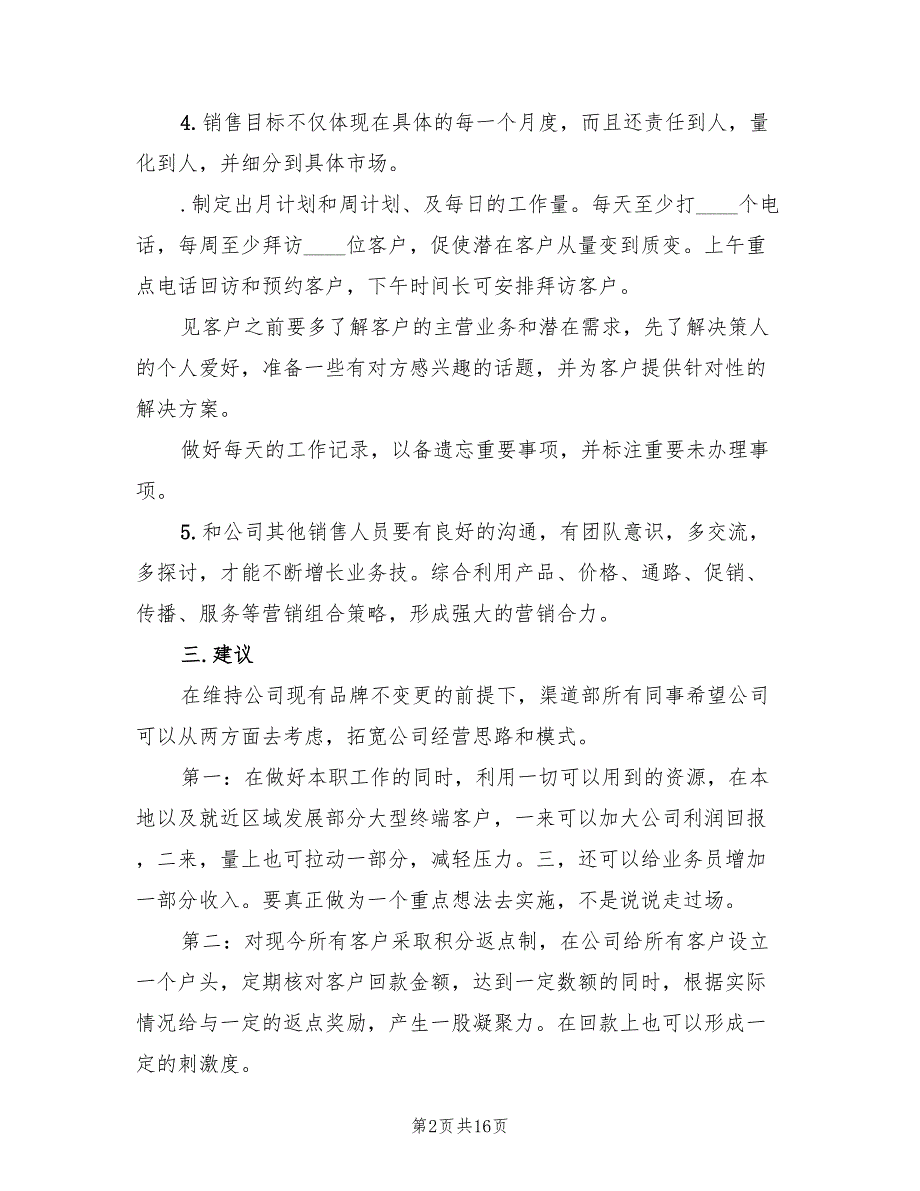 4.销售目标不仅体现在具体的每一个月度，而且还责任到人，量
化到人，并细分到具体市场。
.制定出月计划和周计划、及每日的工作量。每天至少打____个电
话，每周至少拜访____位客户，促使潜在客户从量变到质变。上午重
点电话回访和预约客户，下午时间长可安排拜访客户。
见客户之前要多了解客户的主营业务和潜在需求，先了解决策人
的个人爱好，准备一些有对方感兴趣的话题，并为客户提供针对性的
解决方案。
做好每天的工作记录，以备遗忘重要事项，并标注重要未办理事
项。
5.和公司其他销售人员要有良好的沟通，有团队意识，多交流，
多探讨，才能不断增长业务技。综合利用产品、价格、通路、促销、
传播、服务等营销组合策略，形成强大的营销合力。
三.建议
在维持公司现有品牌不变更的前提下，渠道部所有同事希望公司
可以从两方面去考虑，拓宽公司经营思路和模式。
第一：在做好本职工作的同时，利用一切可以用到的资源，在本
地以及就近区域发展部分大型终端客户，一来可以加大公司利润回报
，二来，量上也可拉动一部分，减轻压力。三，还可以给业务员增加
一部分收入。要真正做为一个重点想法去实施，不是说说走过场。
第二：对现今所有客户采取积分返点制，在公司给所有客户设立
一个户头，定期核对客户回款金额，达到一定数额的同时，根据实际
情况给与一定的返点奖励，产生一股凝聚力。在回款上也可以形成一
定的刺激度。
第2页共16页